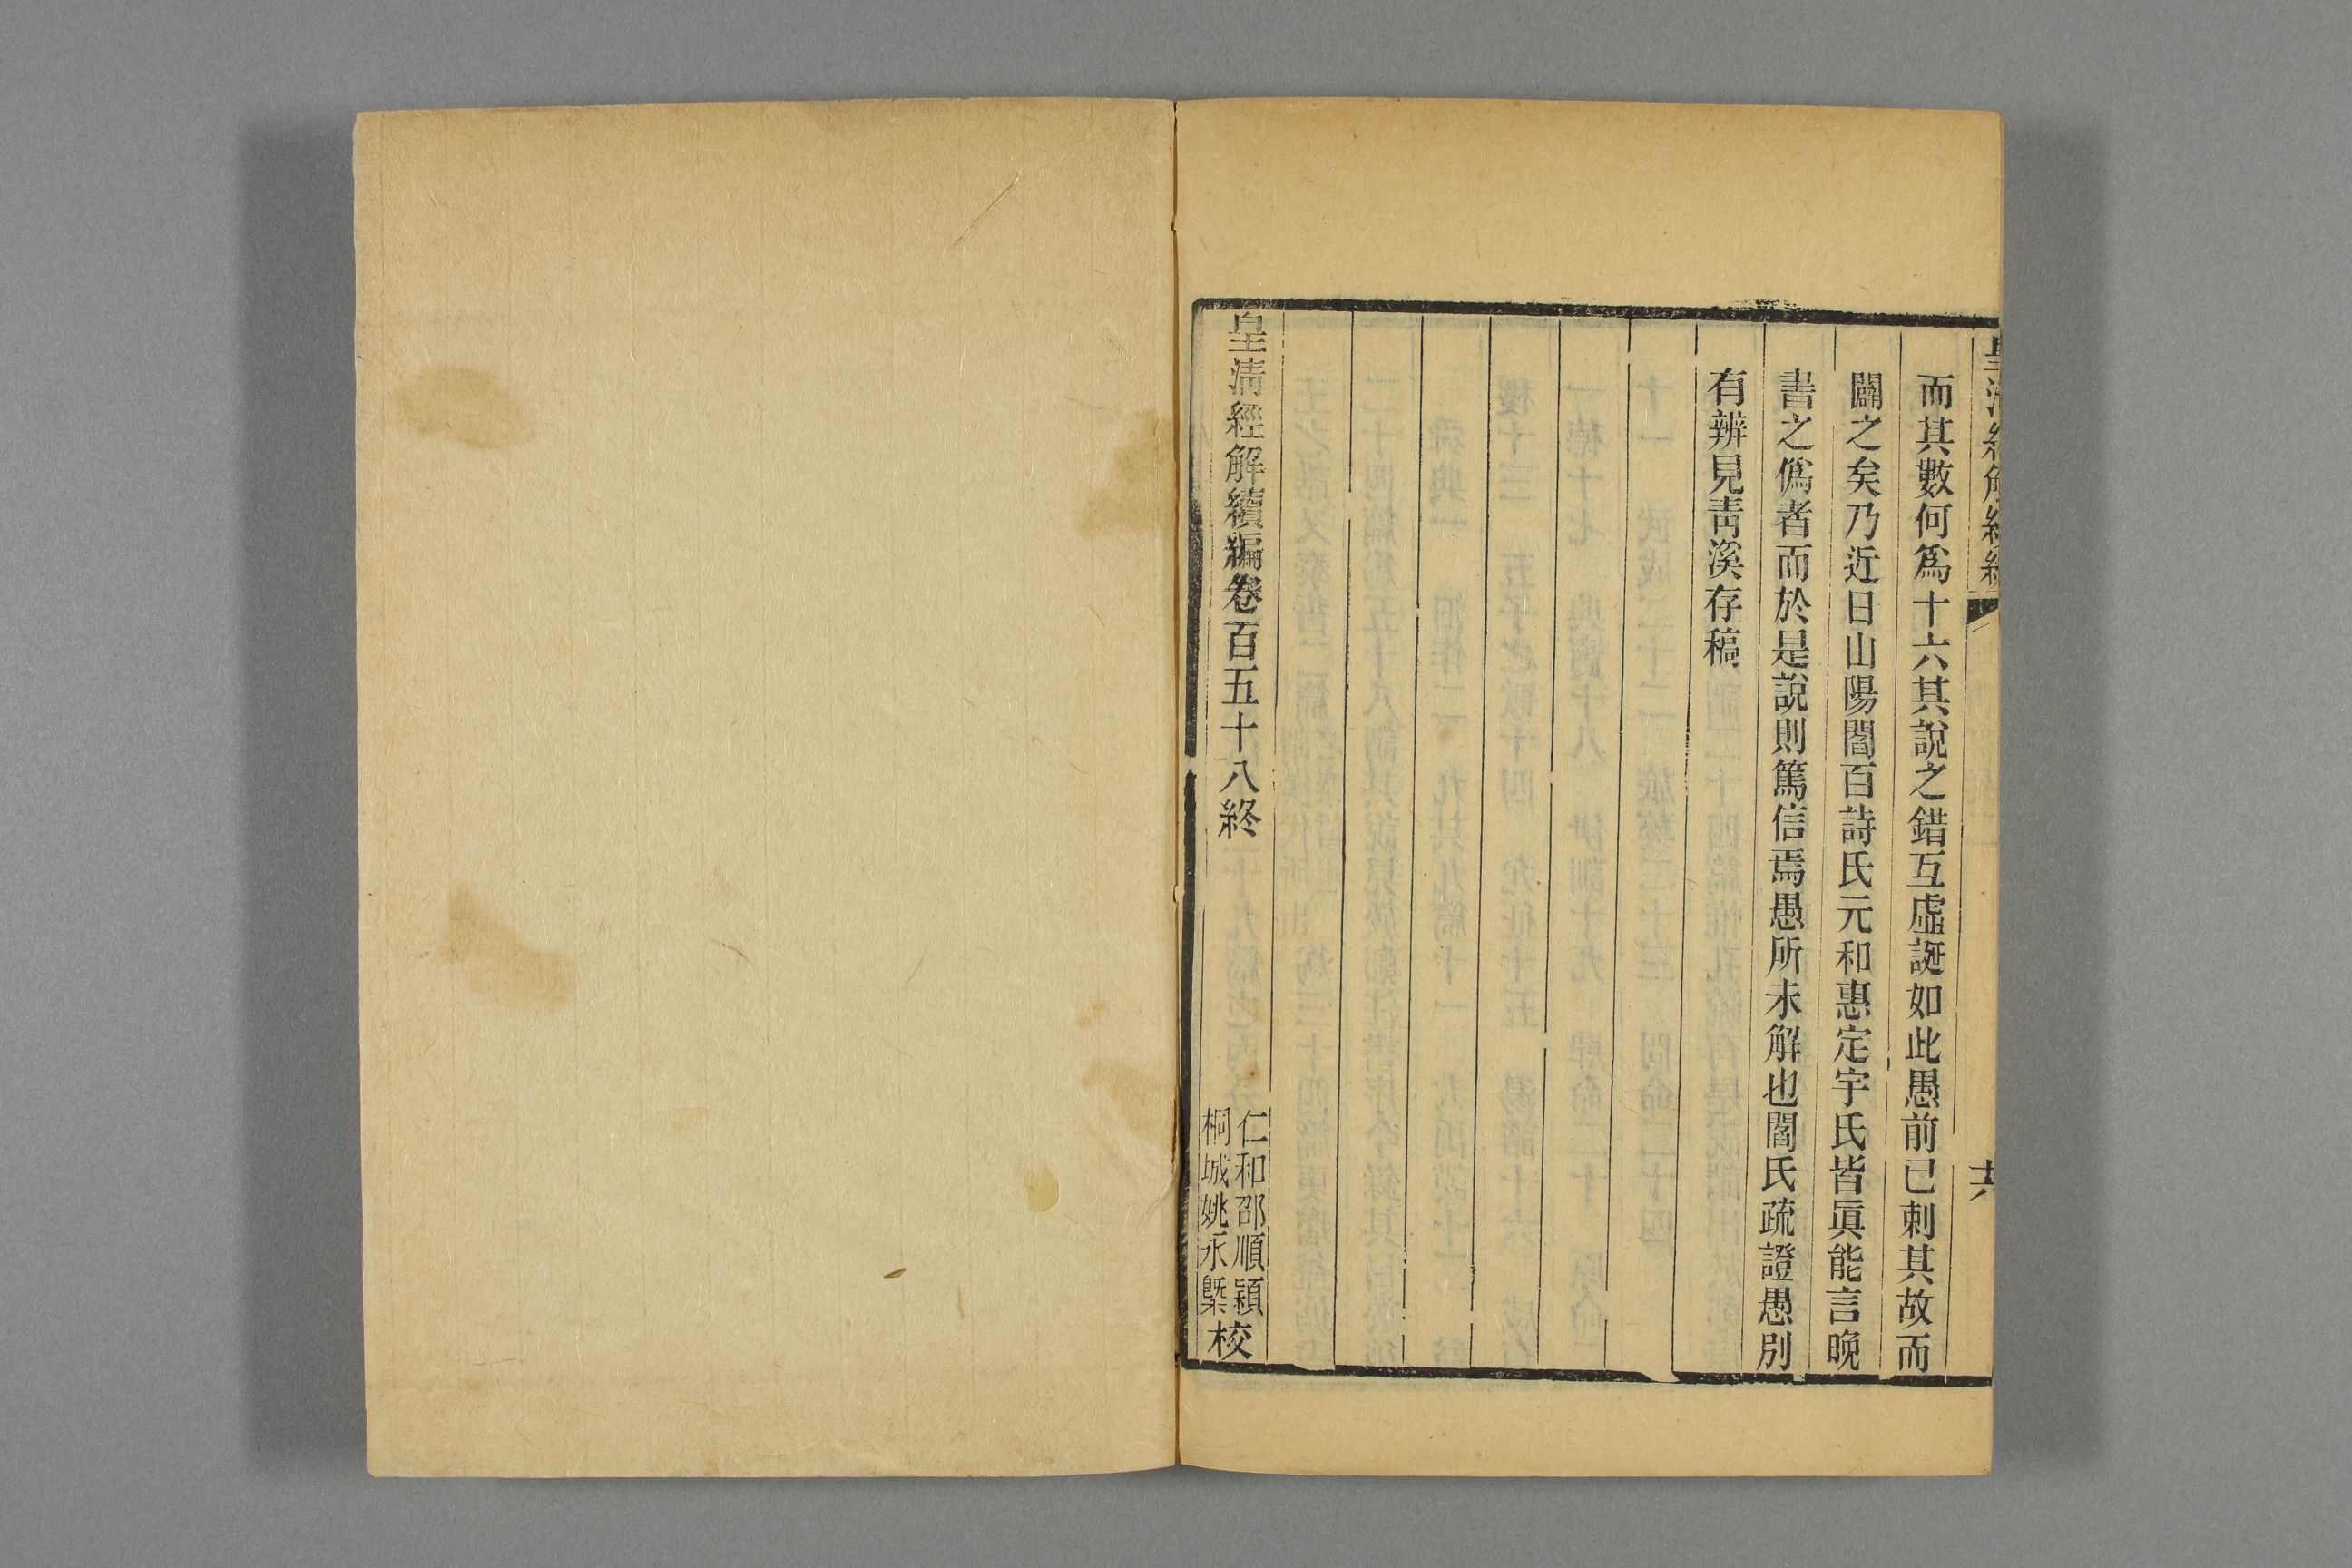 皇清經解續
而其數何爲十六其說之錯互虛誕如此愚前已刺其故而
闢之矣乃近日山陽閻百詩氏元和惠定宇氏皆眞能言晚
書之僞者而於是說則篤信焉愚所未解也閻氏疏證愚別
有辨見靑溪存稿
皇淸經解續編卷百五十八終
仁和邵順穎
桐城姚永㮣
校